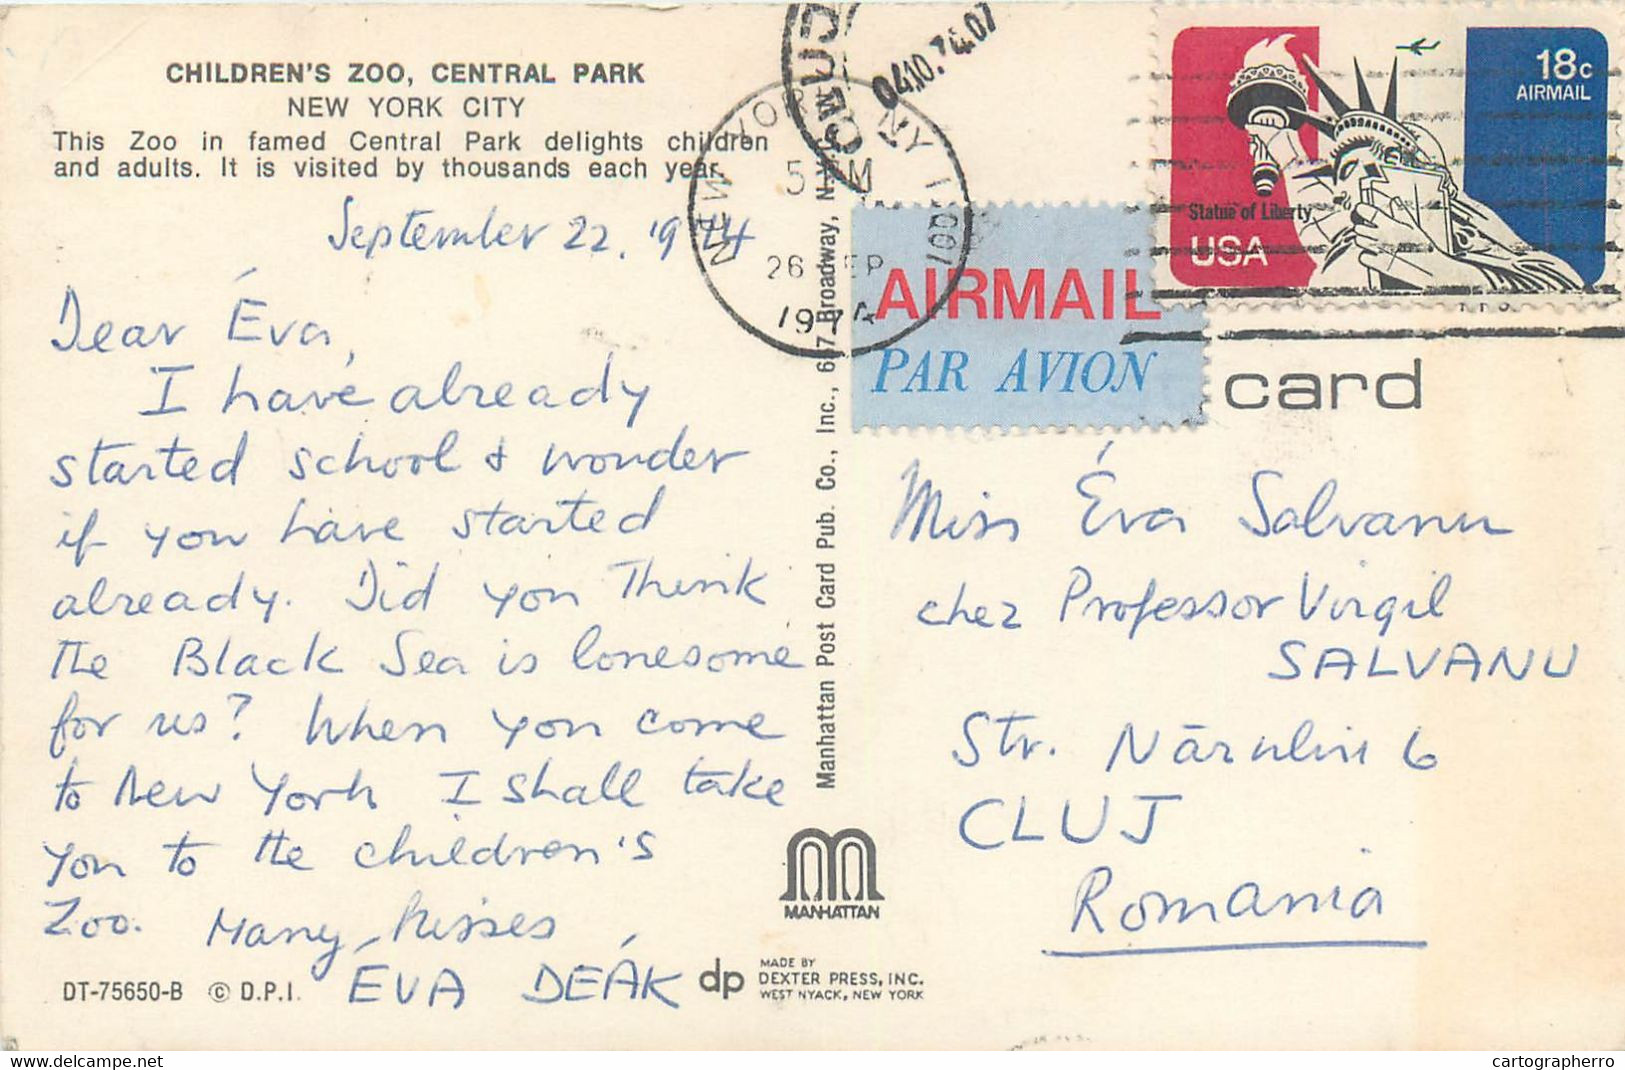 CHILDREN'S ZOO, CENTRAL PARK
NEW YORK CITY
This Zoo in famed Central Park delights children
and adults. It is visited by thousands each year.
September 22, 1974
Dear Éva,
I have already
started school & wonder
if you have started
already. Did you think
the Black Sea is lonesome
for us? When you come
to New York I shall take
you to the children's
Zoo. Many kisses
ÉVA DEÁK
DT-75650-B © D.P.I.
Manhattan Post Card Pub. Co., Inc., 677 Broadway, N.Y.C.
MANHATTAN
dp MADE BY
DEXTER PRESS, INC.
WEST NYACK, NEW YORK
NEW YORK NY 1001
5 PM
26 SEP
1974
04.10.74.07
18c
AIRMAIL
Statue of Liberty
USA
AIRMAIL
PAR AVION
card
Miss Éva Salvanu
chez Professor Virgil
SALVANU
Str. 6
CLUJ
Romania
delcampe.net
cartographerro